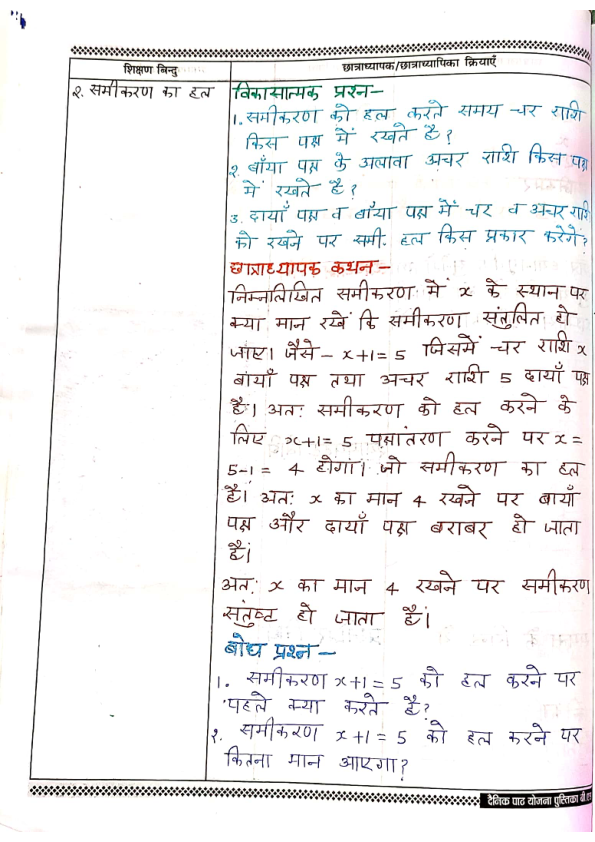 शिक्षण बिन्दु
छात्राध्यापक/छात्राध्यापिका क्रियाएँ
२. समीकरण का हल
विकासात्मक प्रश्न–
1. समीकरण को हल करते समय चर राशि
किस पक्ष में रखते है?
२. बाँया पक्ष के अलावा अचर राशि किस पक्ष
में रखते है?
3. दायाँ पक्ष व बाँया पक्ष में चर व अचर राशि
को रखने पर समी. हल किस प्रकार करेगे?
छात्राध्यापक कथन–
निम्नलिखित समीकरण में x के स्थान पर
क्या मान रखें कि समीकरण संतुलित हो
जाए। जैसे – x+1=5 जिसमें चर राशि x
बायाँ पक्ष तथा अचर राशि 5 दायाँ पक्ष
है। अतः समीकरण को हल करने के
लिए x+1=5 पक्षांतरण करने पर x=
5-1= 4 होगा। जो समीकरण का हल
है। अतः x का मान 4 रखने पर बायाँ
पक्ष और दायाँ पक्ष बराबर हो जाता
है।
अतः x का मान 4 रखने पर समीकरण
संतुष्ट हो जाता है।
बोध प्रश्न –
1. समीकरण x+1=5 को हल करने पर
पहले क्या करते है?
२. समीकरण x+1=5 को हल करने पर
कितना मान आएगा?
दैनिक पाठ योजना पुस्तिका